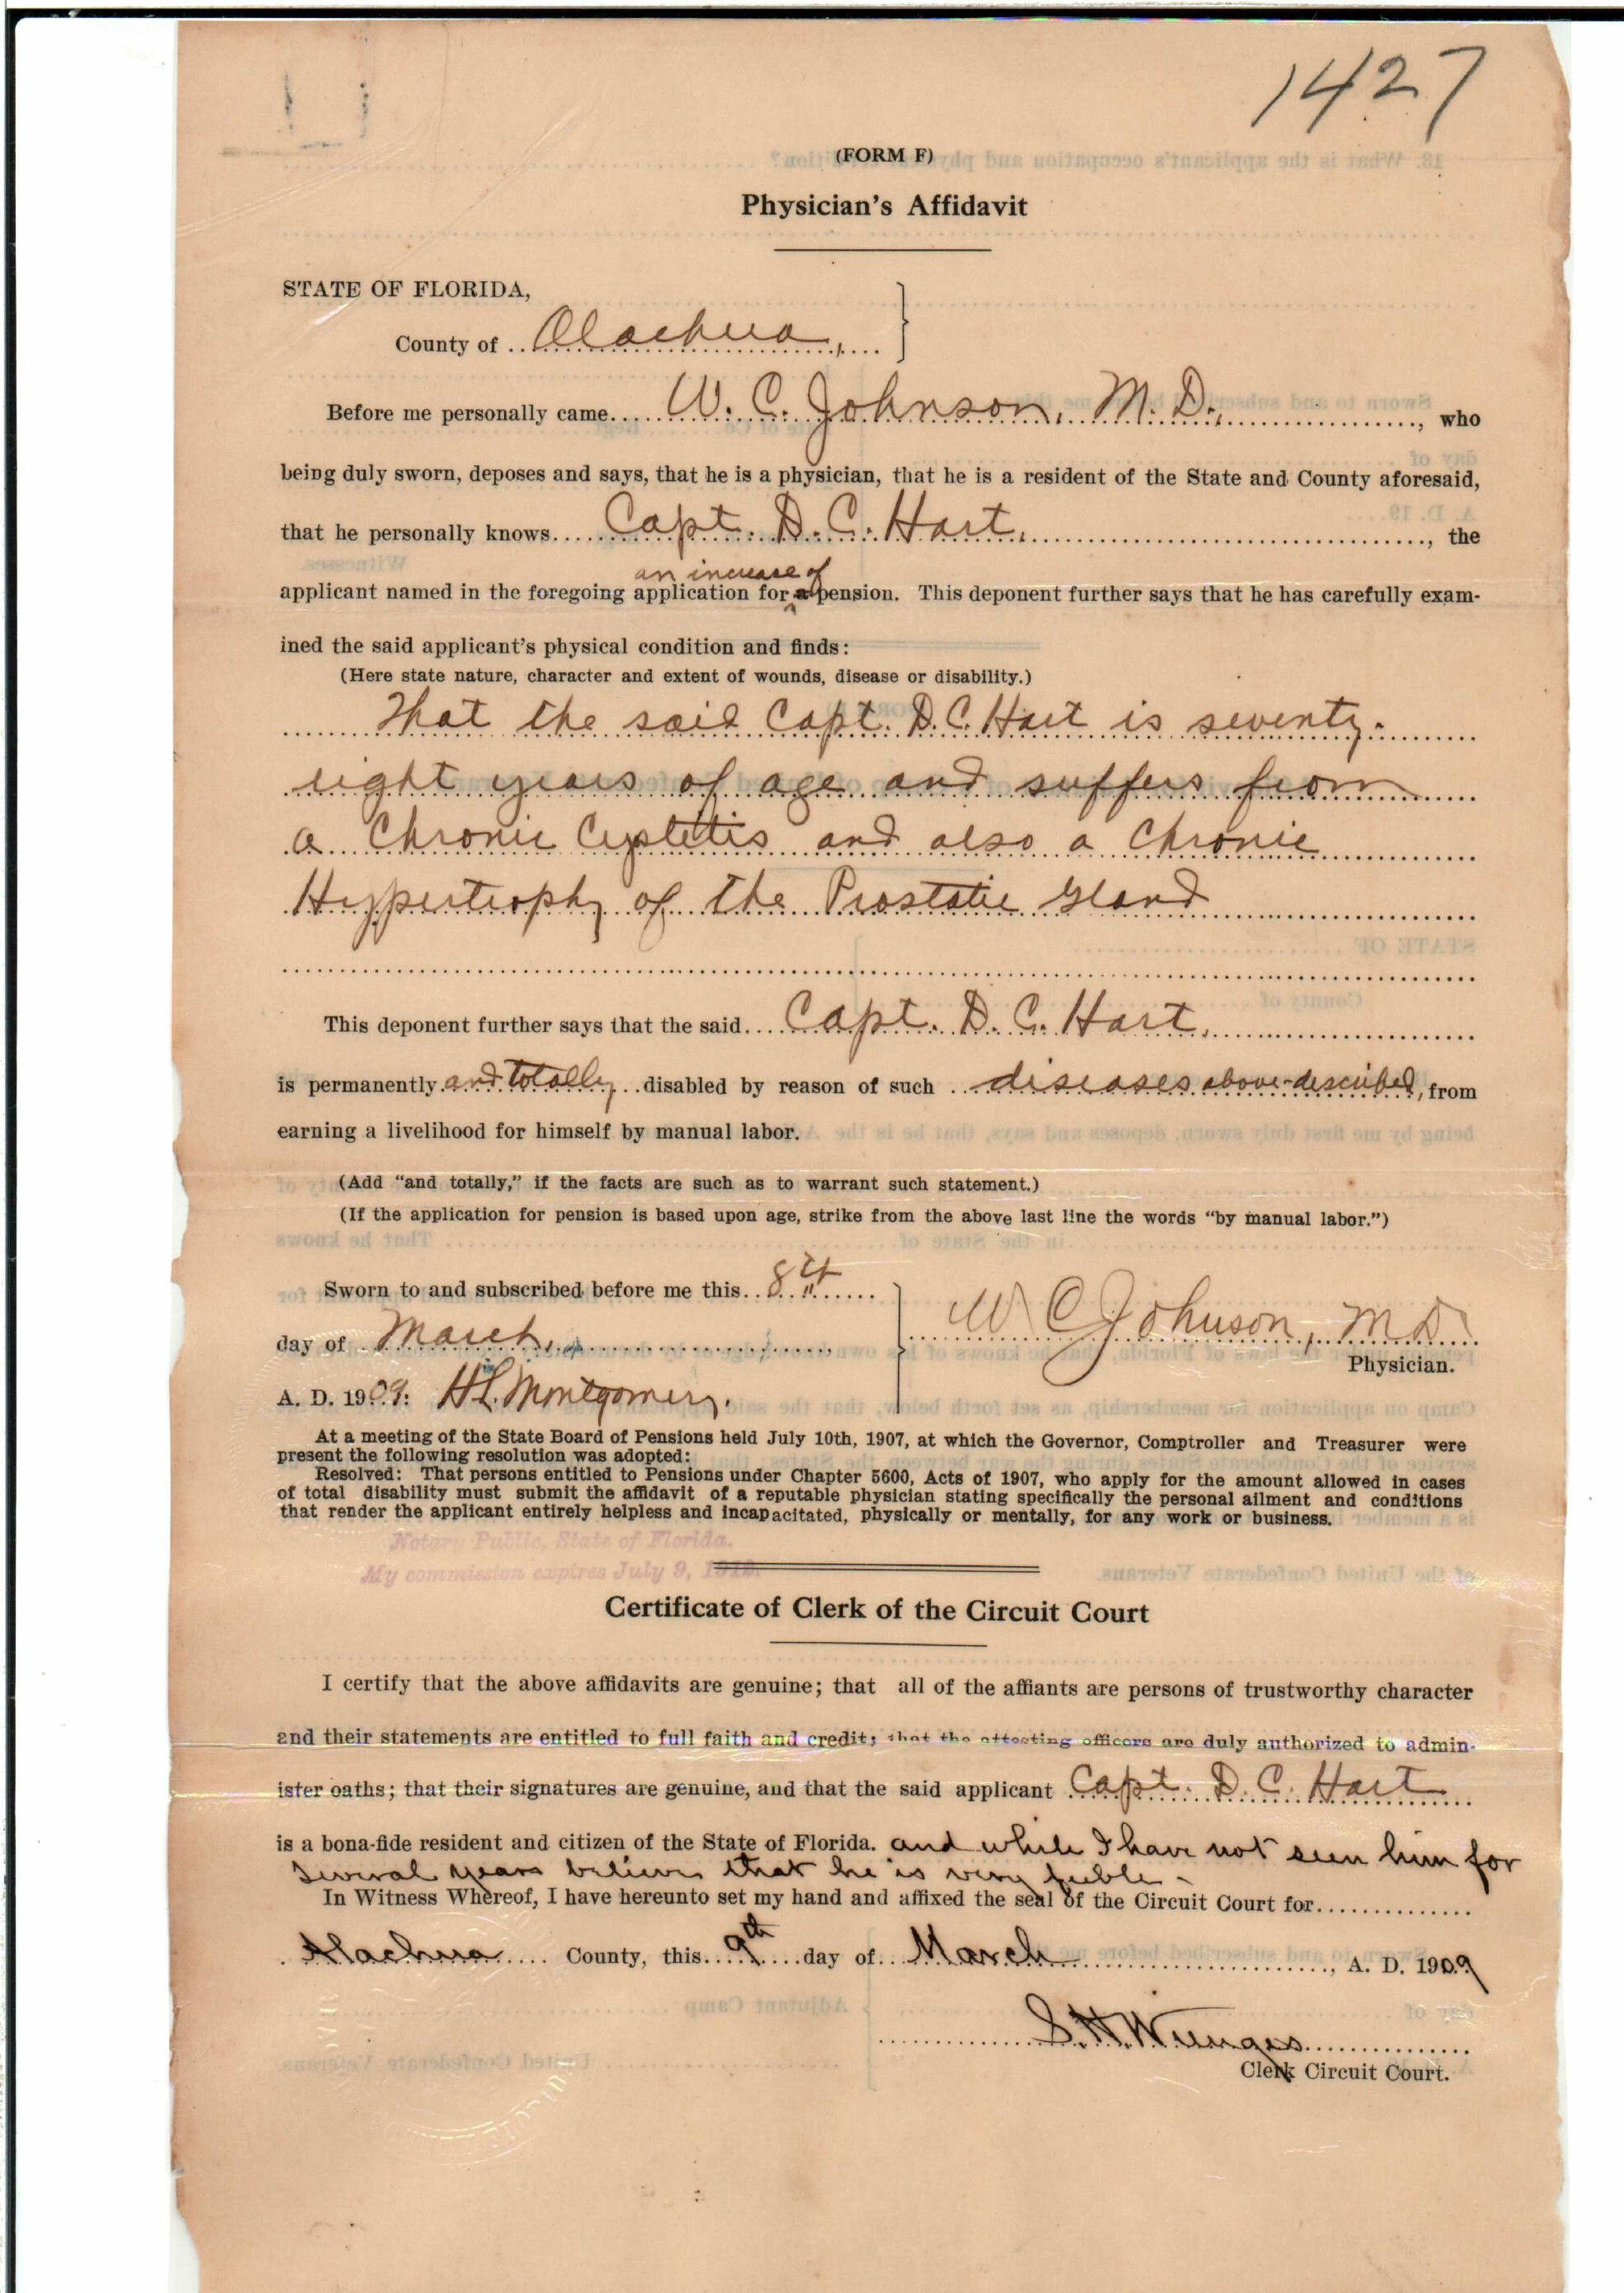 1427
(FORM F)
Physician's Affidavit
STATE OF FLORIDA,
County of Alachua,
Before me personally came W. C. Johnson, M. D., who
being duly sworn, deposes and says, that he is a physician, that he is a resident of the State and County aforesaid,
that he personally knows Capt. D. C. Hart, the
an increase of
applicant named in the foregoing application for a pension. This deponent further says that he has carefully exam-
ined the said applicant's physical condition and finds:
(Here state nature, character and extent of wounds, disease or disability.)
That the said Capt. D. C. Hart is seventy-
eight years of age and suffers from
a Chronic Cystitis and also a Chronic
Hypertrophy of the Prostatic Gland
This deponent further says that the said Capt. D. C. Hart,
is permanently and totally disabled by reason of such diseases above-described, from
earning a livelihood for himself by manual labor.
(Add "and totally," if the facts are such as to warrant such statement.)
(If the application for pension is based upon age, strike from the above last line the words "by manual labor.")
Sworn to and subscribed before me this 8th
day of March,
W C Johnson, M D
Physician.
A. D. 1909. H L Montgomery.
At a meeting of the State Board of Pensions held July 10th, 1907, at which the Governor, Comptroller and Treasurer were
present the following resolution was adopted:
Resolved: That persons entitled to Pensions under Chapter 5600, Acts of 1907, who apply for the amount allowed in cases
of total disability must submit the affidavit of a reputable physician stating specifically the personal ailment and conditions
that render the applicant entirely helpless and incapacitated, physically or mentally, for any work or business.
Notary Public, State of Florida.
My commission expires July 9,
Certificate of Clerk of the Circuit Court
I certify that the above affidavits are genuine; that all of the affiants are persons of trustworthy character
and their statements are entitled to full faith and credit; that the attesting officers are duly authorized to admin-
ister oaths; that their signatures are genuine, and that the said applicant Capt. D. C. Hart
is a bona-fide resident and citizen of the State of Florida. and while I have not seen him for
several years believe that he is very feeble -
In Witness Whereof, I have hereunto set my hand and affixed the seal of the Circuit Court for
Alachua County, this 9th day of March, A. D. 1909
S. H. Wienges
Clerk Circuit Court.